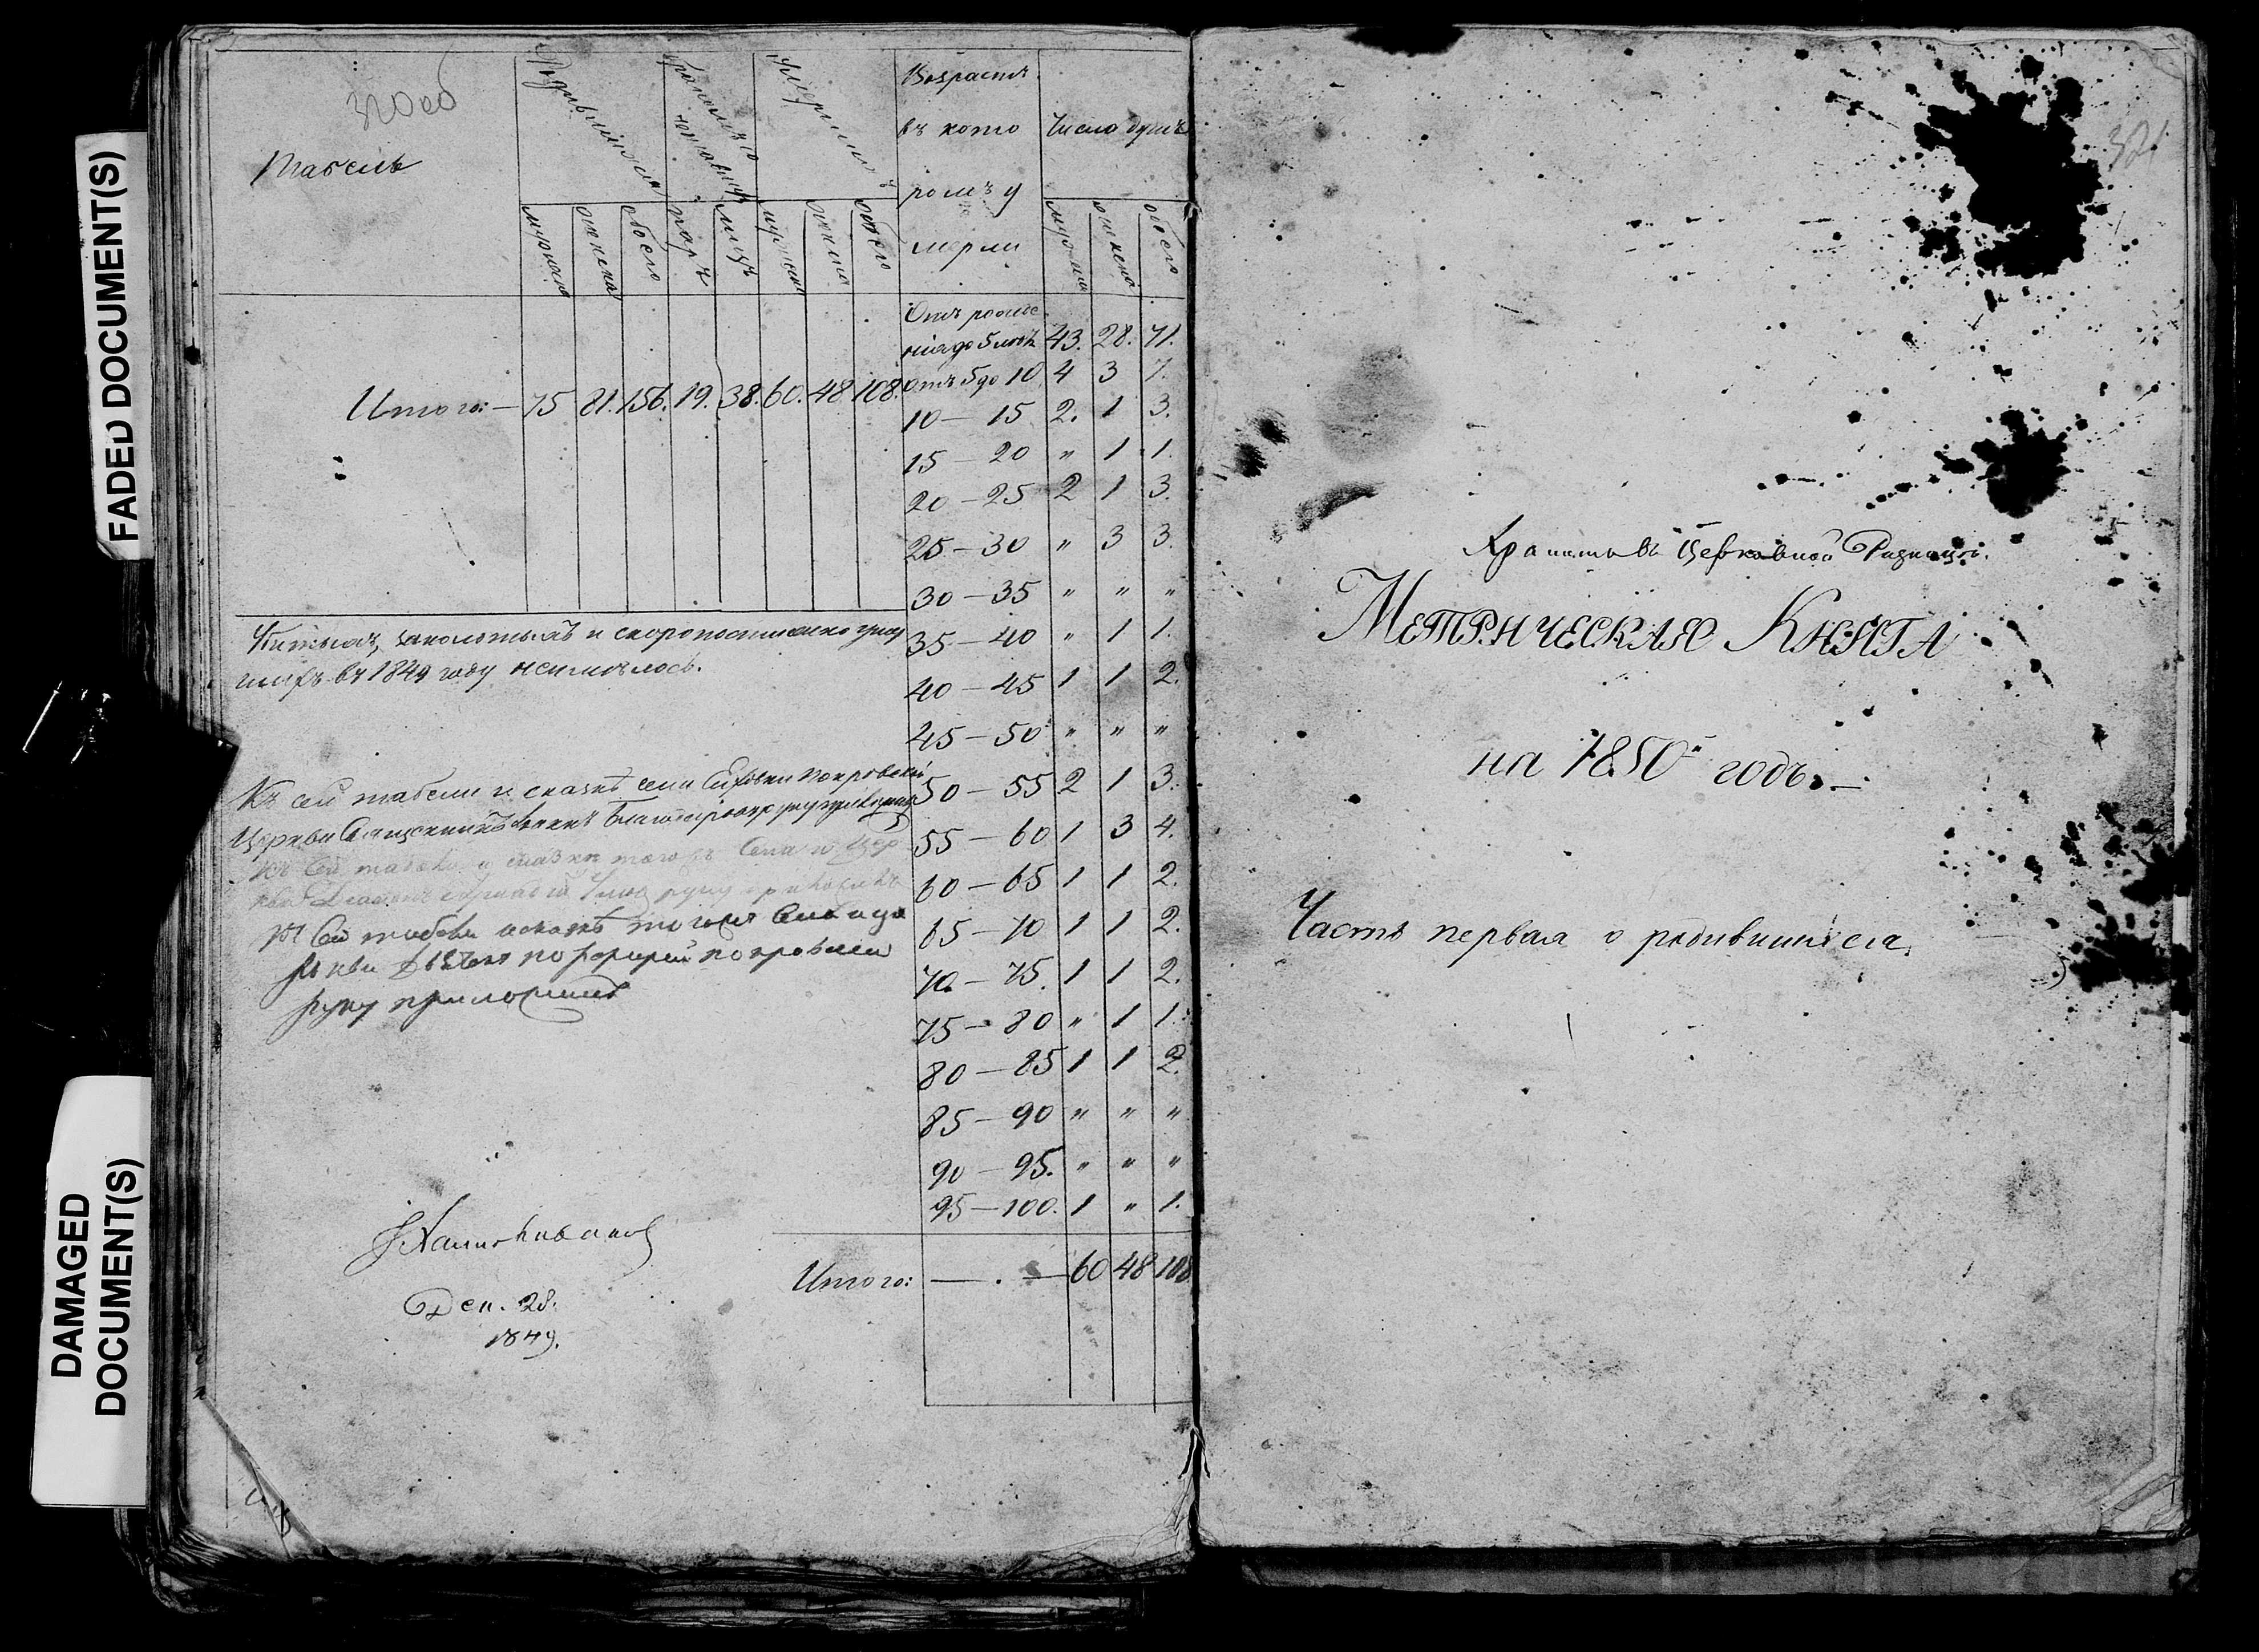 FADED DOCUMENT(S)
DAMAGED
DOCUMENT(S)
320 об
Табель
Родившихся
Бракомъ со
четавших
Умершихъ
Возрастъ
въ кото
ромъ у
мерли
Число душъ
мужеска
женска
обоего
паръ
лицъ
мужеска
женска
обоего
мужеска
женска
обоего
Отъ рожде
нія до 5 летъ 43. 28. 71.
Отъ 5 до 10 4 3 7.
Итого: — 75 81. 156. 19. 38. 60. 48 108.
10 — 15 2. 1 3.
15 — 20 " 1 1.
20 — 25 2 1 3.
25 — 30 " 3 3.
30 — 35 " " "
35 — 40 " 1 1.
40 — 45 1 1 2.
45 — 50 " " "
50 — 55 2 1 3.
55 — 60 1 3 4.
60 — 65 1 1 2.
65 — 70 1 1 2.
70. — 75. 1 1 2.
75 — 80 " 1 1.
80 — 85 1 1 2.
85 — 90 " " "
90 — 95. " " "
95 — 100. 1 " 1.
Итого: — . — 60 48 108
и скоропостижно умер
шихъ въ 1849 году неимелось.
Къ сей табели и сказкѣ села Покровской
Церкви Священникъ руку приложилъ
Къ сей табели и сказки тогожъ Села и Цер
кви руку приложилъ
Къ сей табели исказкѣ тогожъ Села и це
ркви покровски
руку приложилъ
Дек. 28.
1849.
321
Хранить въ Церковной Ризнице.
Метрическая Книга
на 1850й годъ. —
Часть первая о родившихся.